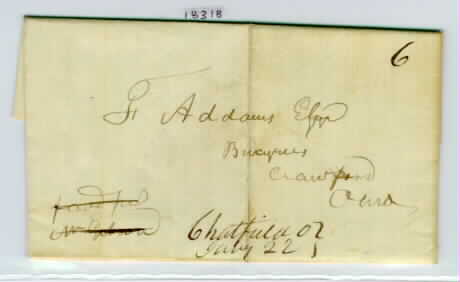 18318
6
F Addams Esqr
Bucyrus
Crawford
Ohio
Chatfield O
Jany 22